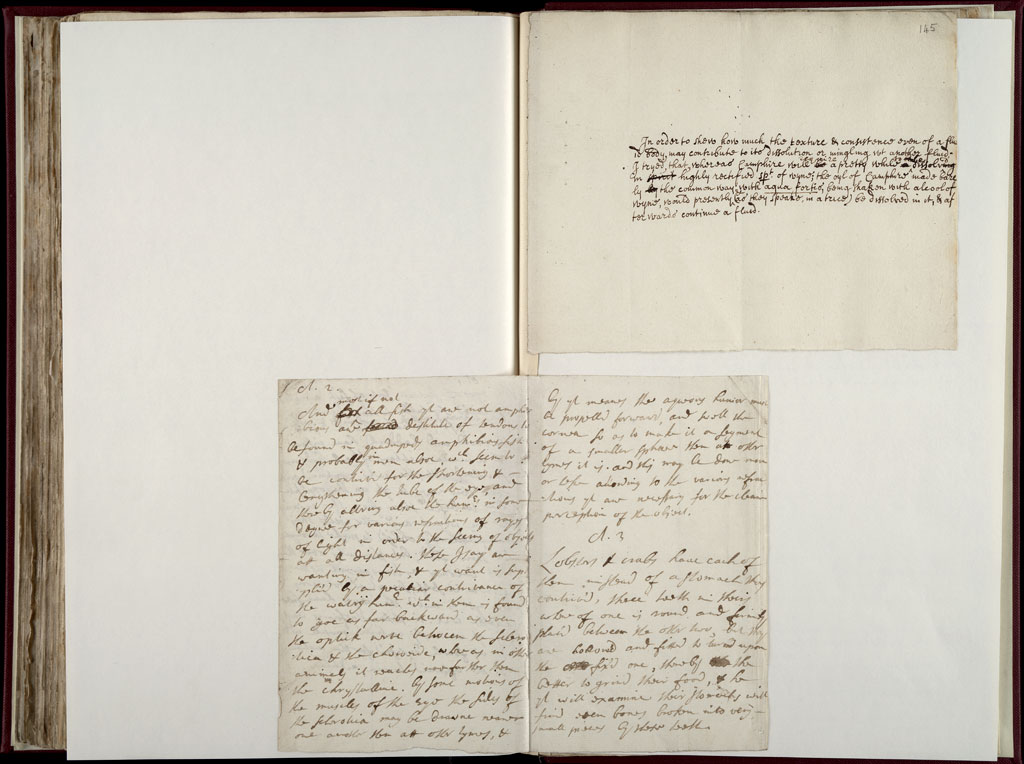 145
In order to shew how much the texture & consistence even of a flu
id body may contribute to its dissolution or mingling wt another fluid.
I tryed, that whereas Camphire will require a pretty while in dissolving
in spirit highly rectified spt of wyne; the oyl of Camphire made bare
ly the common way, with aqua fortis, being shaken with alcool of
wyne, would presently (as they speake, in a trice) be dissolved in it, & af
terwards continue a fluid.
A. 2
most if not
And all fish yt are not amphi
bious are destitute of tendons to
be found in quadrupeds amphibious fish
& probably in men alsoe, wch seem to
be contriv'd for the shortening &
lengthening the tube of the eye, and
thereby altring alsoe the humrs in some
degree for various refractions of rays
of light in order to the seeing of objects
at all distances. These I say are
wanting in fish, & yt want is sup
plied by a peculiar contrivance of
the watery humr. wch in them is found
to goe as far backward as even
the optick nerve between the sclero
tica & the choroide, whereas in other
animals it reaches noe further then
the chrystalline. By some motions of
the muscles of the Eye the sides of
the sclerotica may be drawne nearer
one another then at other tymes, &
by yt meanes the aqueous humor must
be propelled forward, and swell the
cornea so as to make it a segment
of a smaller sphaere then at other
tymes it is. and this may be done more
or lesse according to the various refrac
tions yt are necessary for the cleare
perception of the object.
A. 3
Lobsters & crabs have each of
them instead of a stomach they
contrived, three teeth in their
one is round and
plac'd between the other two, but they
are hollow'd and fitted to turne upon
the first one, thereby the
better to grind their food, & he
yt will examine their stomachs will
find even bones broken into very
small pieces by these teeth.